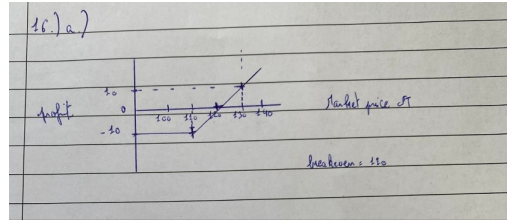 16.) a.)
10
profit
0
100 110 120 130 140
Market price ST
-10
breakeven = 110